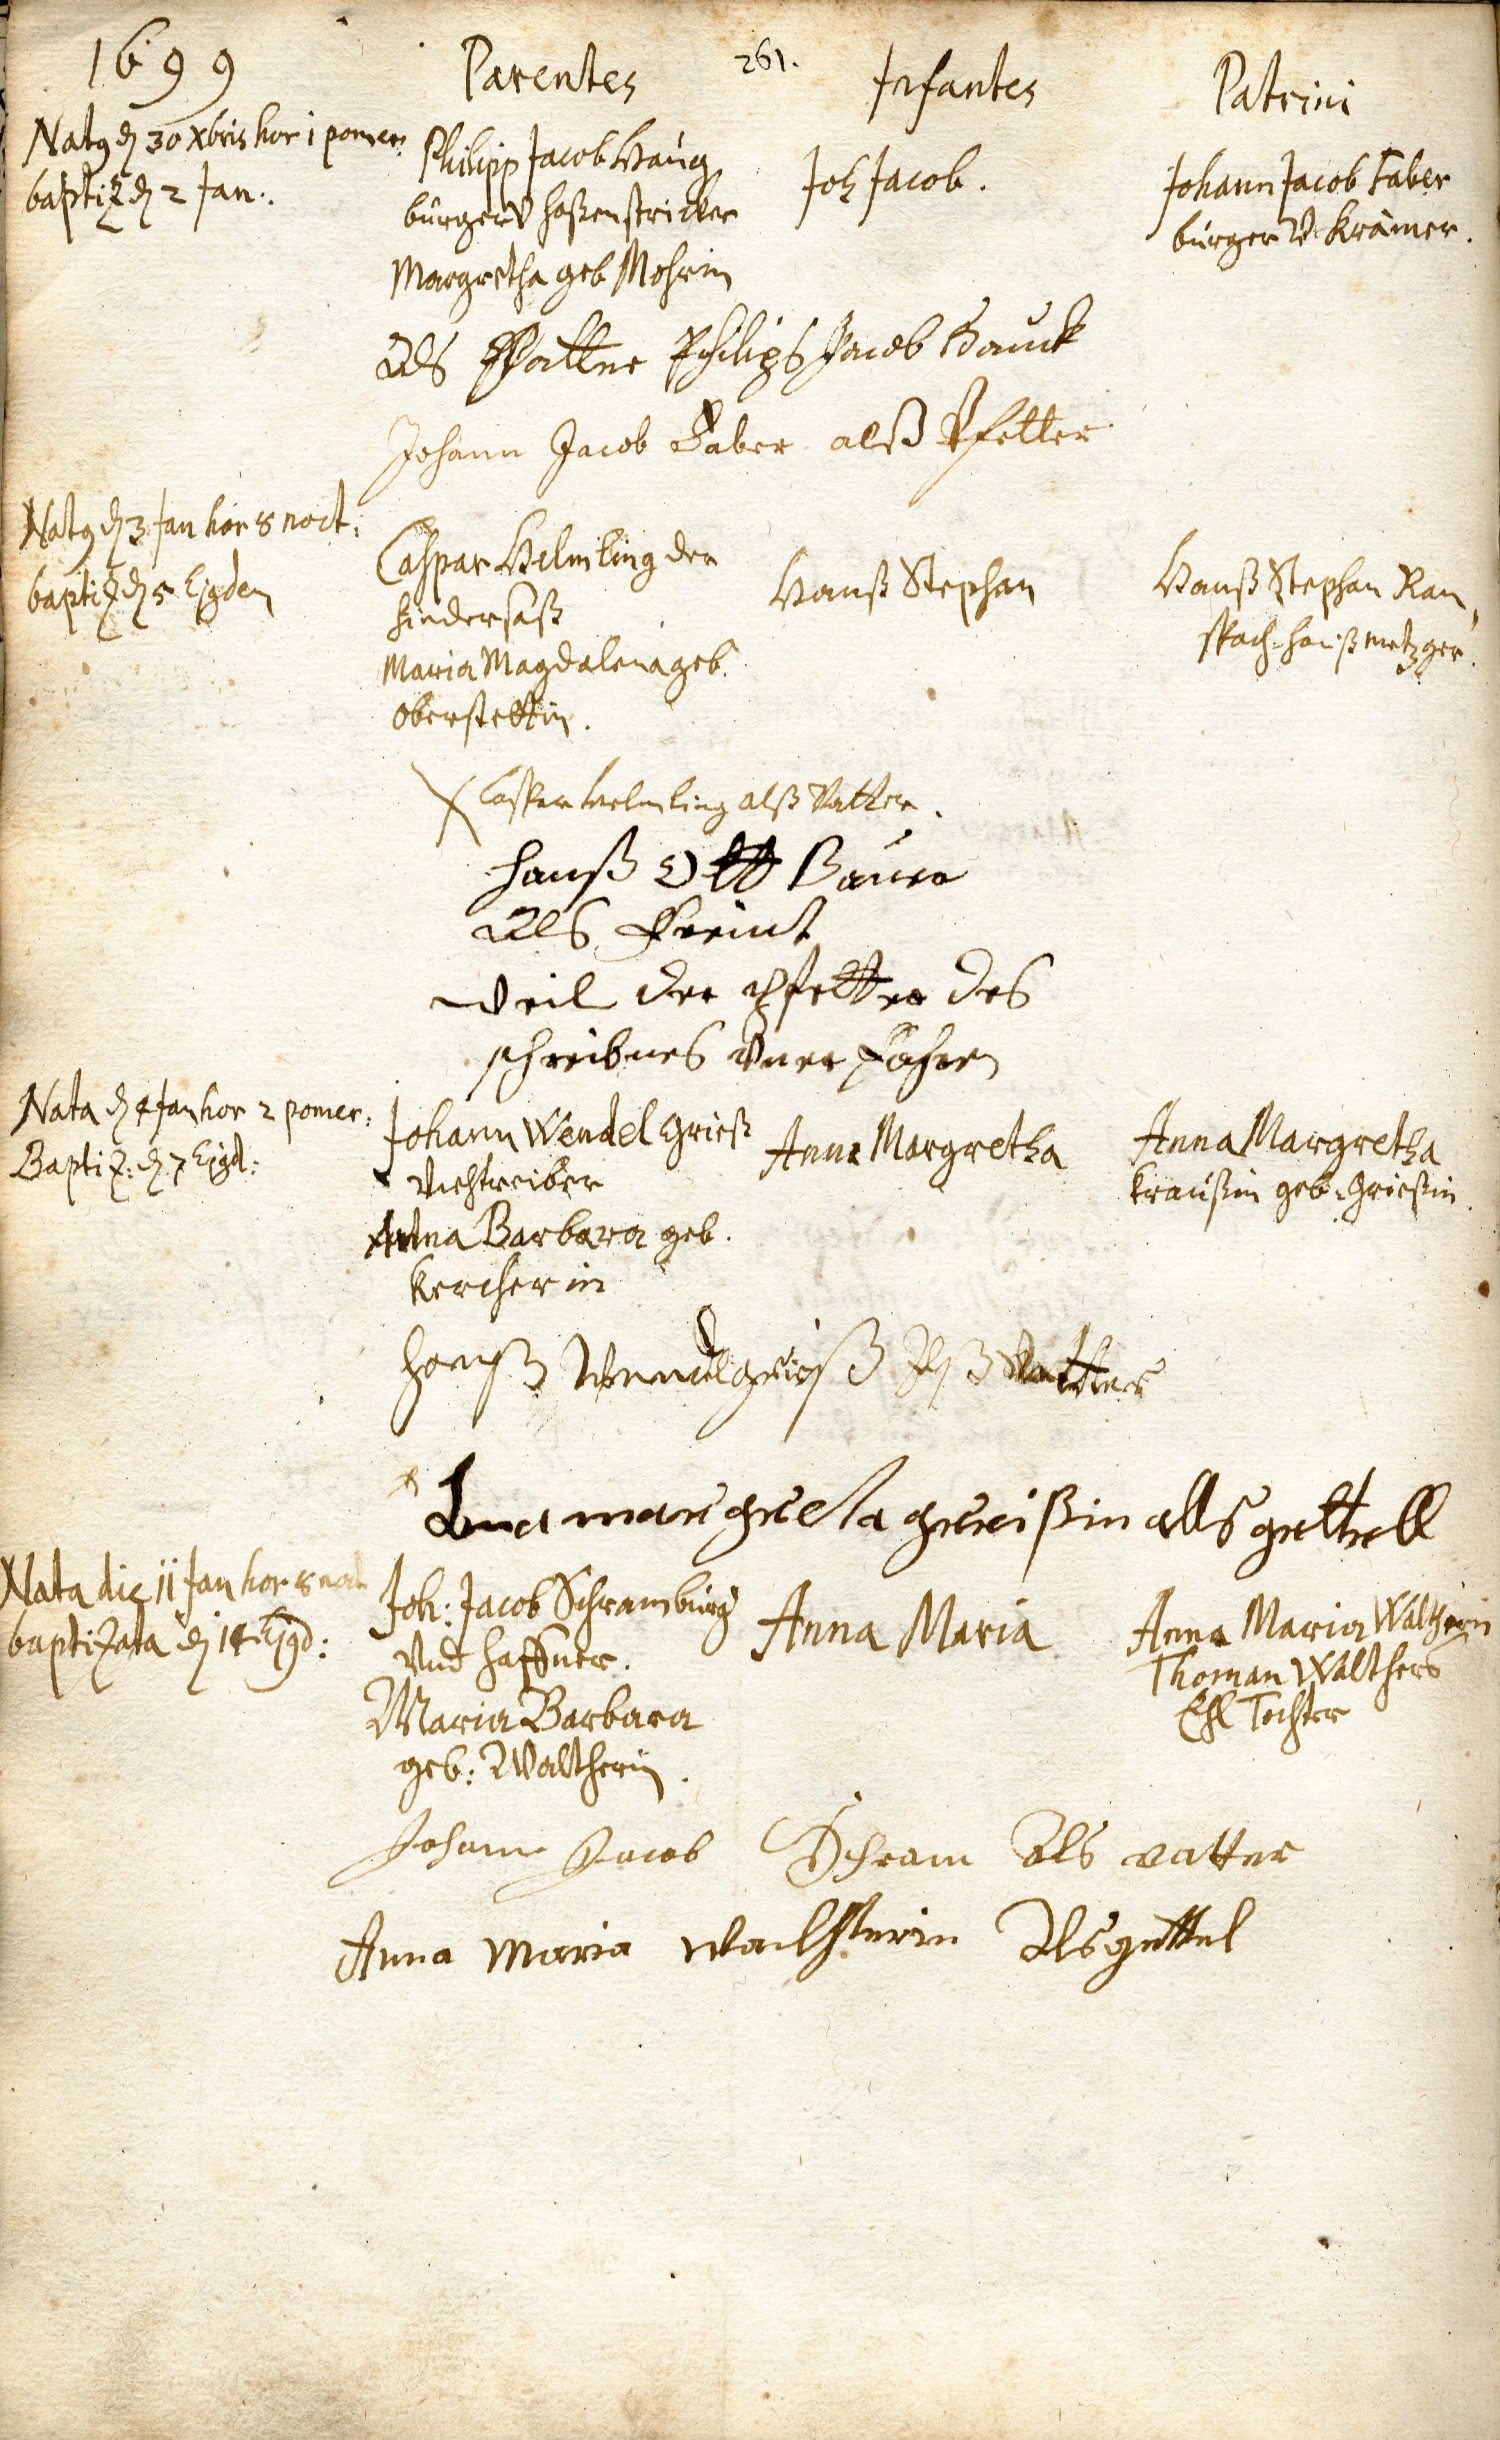 1699
Parentes
261.
Infantes
Patrini
Natq d 30 Xbris hor 1 pomer:
baptiz d 2 Jan:.
Philipp Jacob Haug
burger V hoßenstricker
Margretha geb Mohrin
Joh Jacob.
Johann Jacob Faber
burger V Krämer.
Als Vatter Philips Jacob Hauck
Johann Jacob Faber alß Pfetter
Natq d 3 Jan hor 8 noct:
baptiz d 5 Ejusdem
Caspar Helmling der
hindersaß
Maria Magdalena geb.
Oberstettin.
Hanß Stephan
Hanß Stephan Ran,
spach haußmetzger.
X Casper Helmling alß Vatter.
Hanß Ott Baur
Als Freint
weil der Pfetter des
schreibnes Vner Fahren
Nata d 4 Jan hor 2 pomer:
Baptiz: d 7 Ejgd:
Johann Wendel Grieß
Viehtreiber
Anna Barbara geb.
Kercherin
Anna Margretha
Anna Margretha
Kraußin geb. Grießin.
Hanß Wendel grieß Alß Vatter
margreta greißin alls gettell
Nata die 11 Jan hor 8 noct
baptizata d 14 Ejgd:
Joh: Jacob Schram burg
Vnd haffner.
Maria Barbara
geb: Waltherin.
Anna Maria
Anna Maria Waltherin
Thoman Walthers
Ehl Tochter
Johann Jacob Schram Als vatter
Anna Maria Walhterin Als gettel